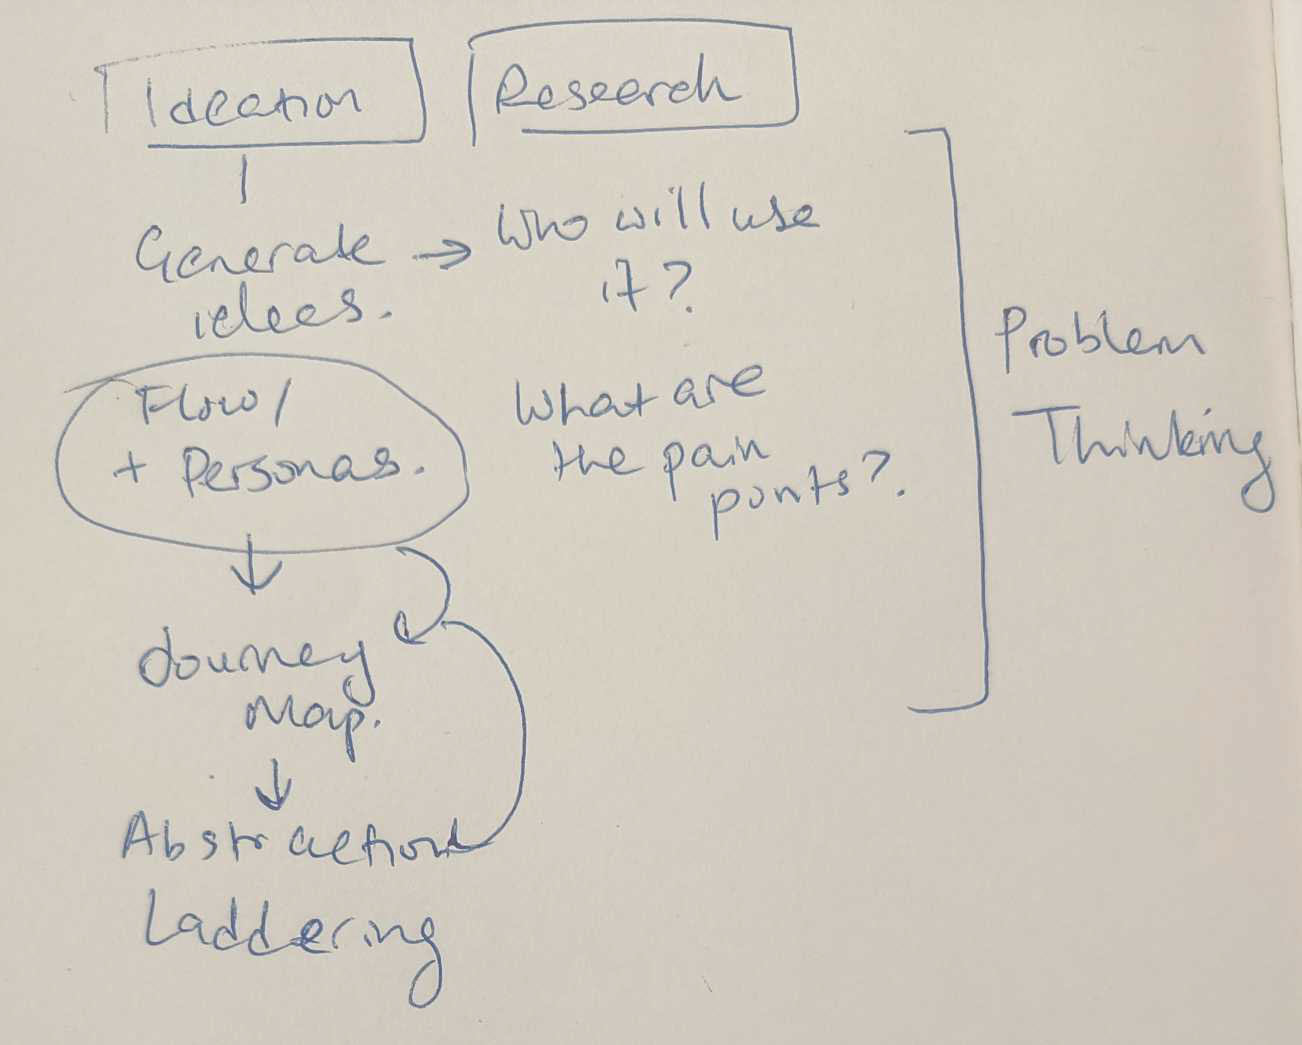 Ideation
Research
Generate
ideas.
→ Who will use
it?
Flow/
+ Personas.
What are
the pain
points?.
Journey
Map.
Abstraction
Laddering
Problem
Thinking